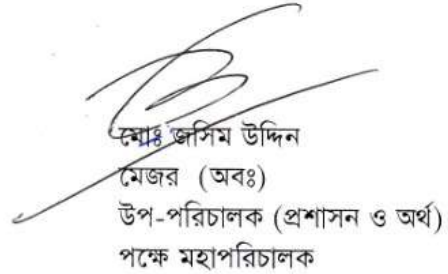 মোঃ জসিম উদ্দিন
মেজর (অবঃ)
উপ-পরিচালক (প্রশাসন ও অর্থ)
পক্ষে মহাপরিচালক